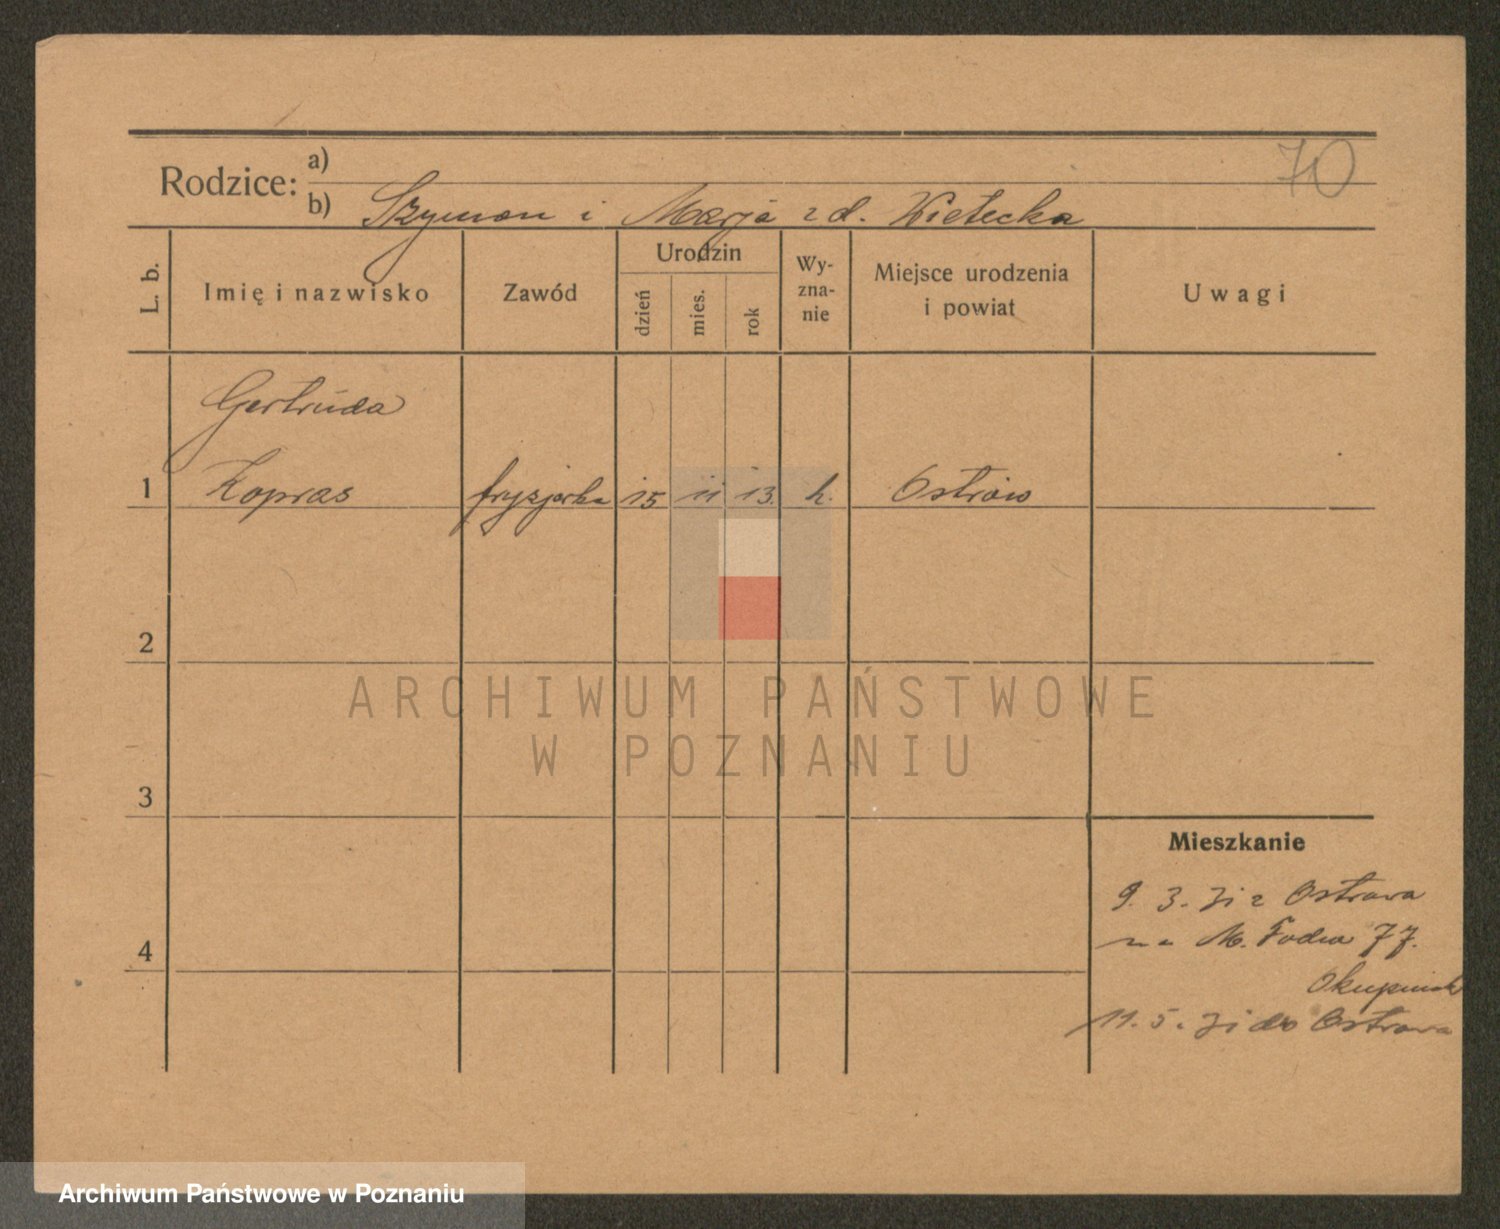 70
Rodzice: a)
b) Szymon i Marja z d. Wietecka
L. b.
Imię i nazwisko
Zawód
Urodzin
dzień
mies.
rok
Wy-
zna-
nie
Miejsce urodzenia
i powiat
Uwagi
Gertruda
1 Kopras fryzjerka 15 11 13. k. Ostrów
2
ARCHIWUM PAŃSTWOWE
W POZNANIU
3
Mieszkanie
9. 3. 31 z Ostrowa
na M. Focha 77.
4
11. 5. 31 do Ostrowa
Archiwum Państwowe w Poznaniu